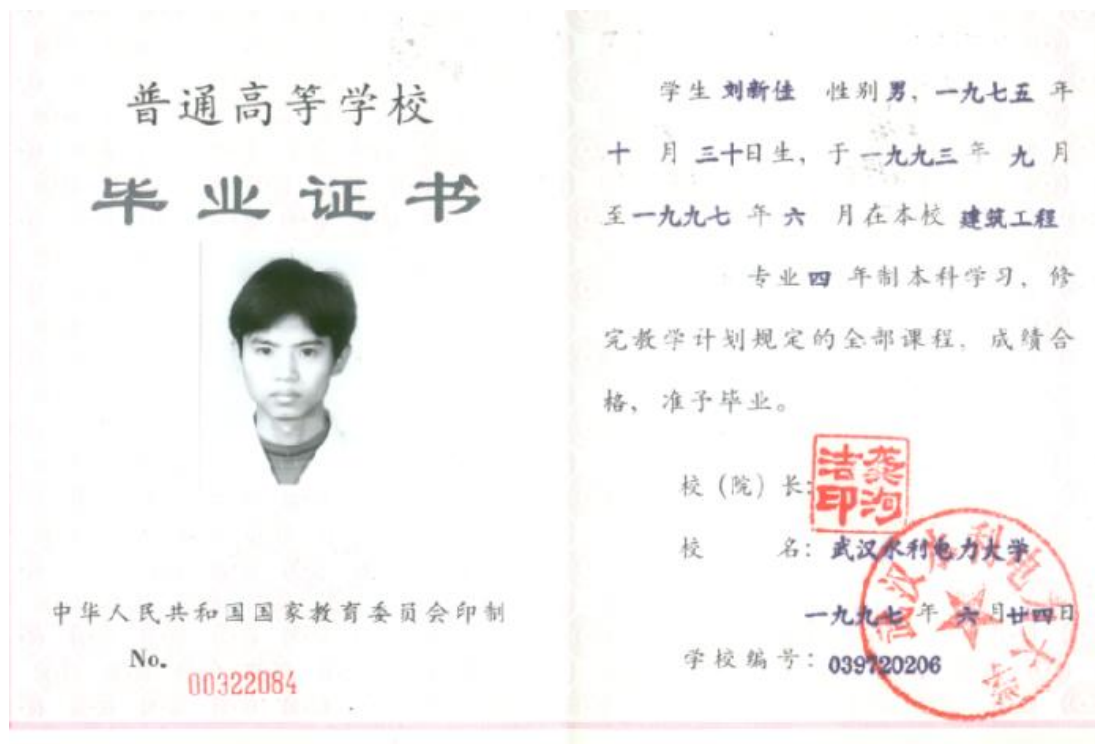 普通高等学校
毕业证书
中华人民共和国国家教育委员会印制
No. 00322084
学生 刘新佳 性别 男、一九七五 年
十 月 三十日生、于 一九九三 年 九 月
至 一九九七 年 六 月在本校 建筑工程
专业 四 年制本科学习、修
完教学计划规定的全部课程、成绩合
格、准予毕业。
校(院)长: 龚洵洁印
校 名: 武汉水利电力大学
武汉水利电力大学
一九九七 年 六 月廿四日
学校编号: 039720206